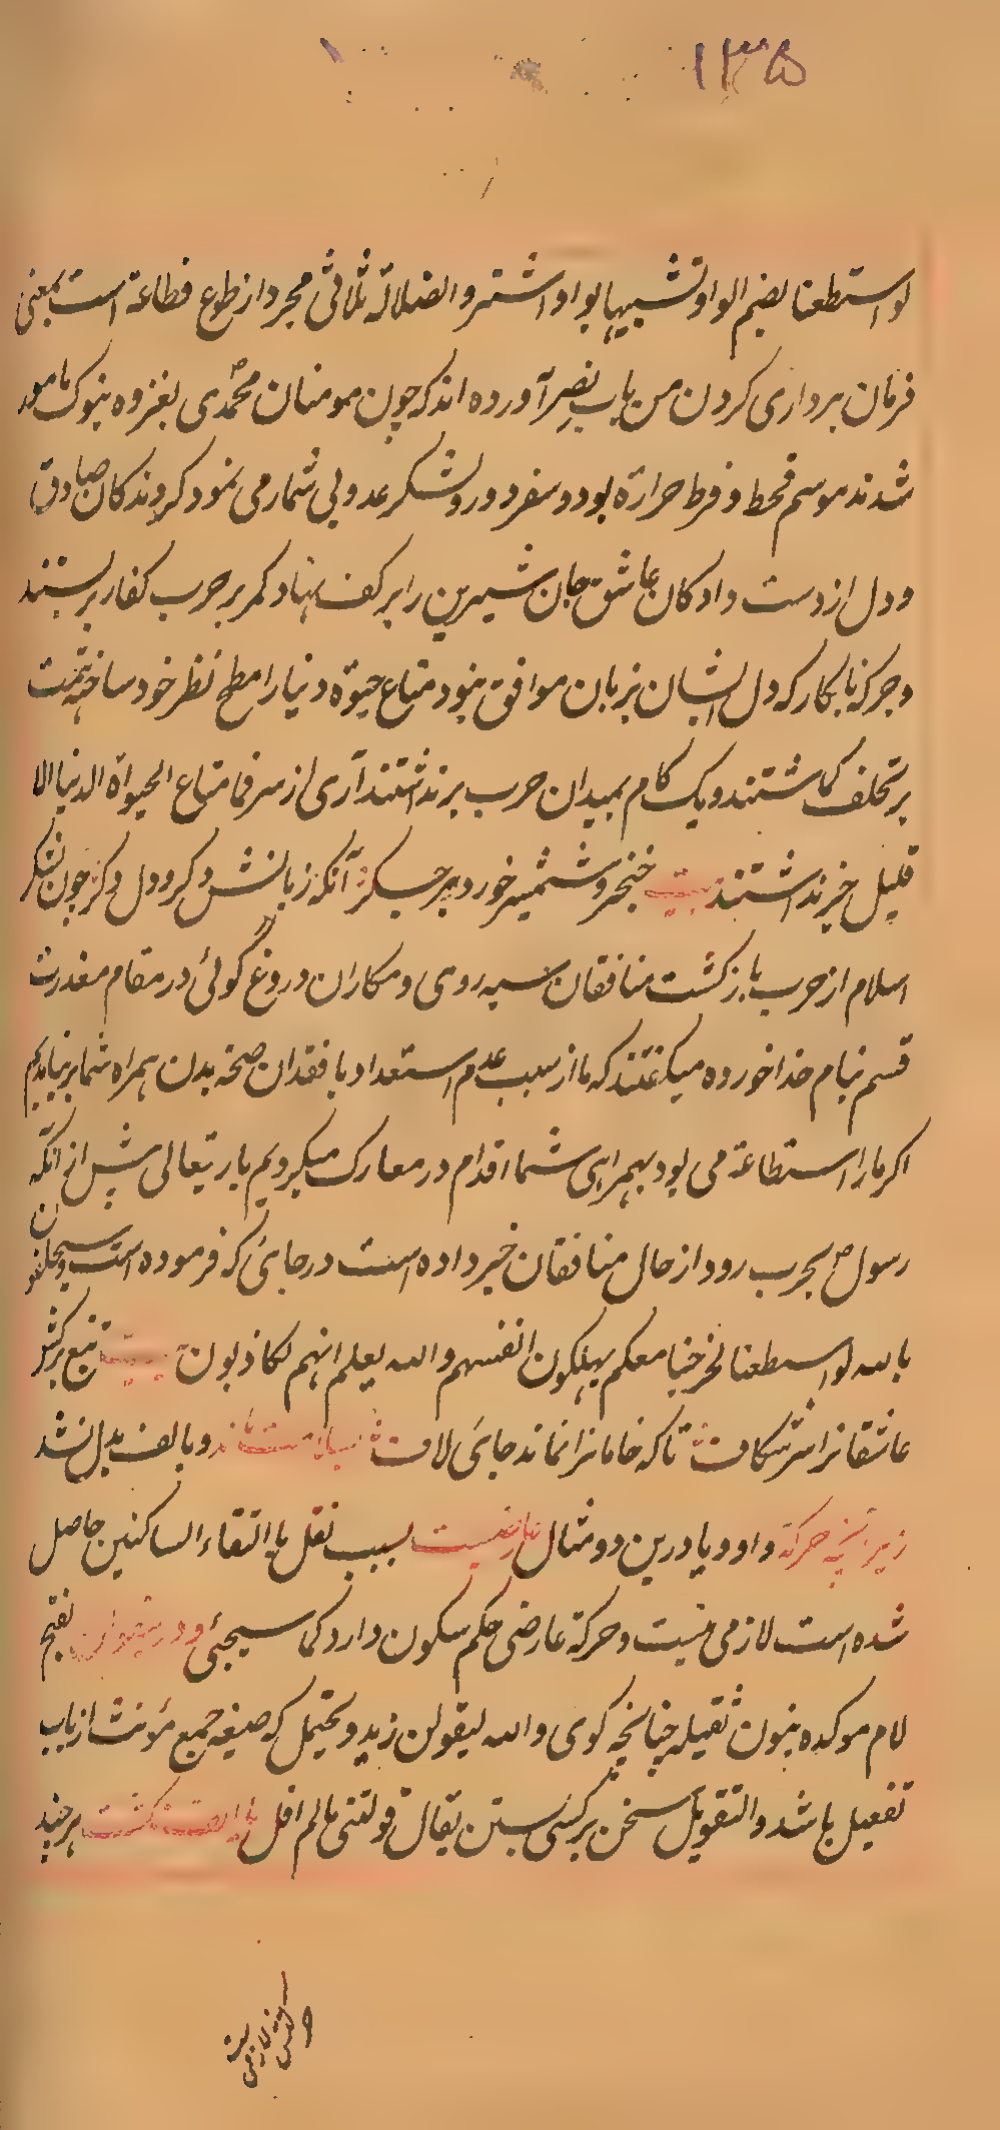 ۱۳۵
لو استطعنا بضم الواو تشبیها بواو اشتروا الضلالة ثلاثی مجرد از طوع فطاعة است بمعنی
فرمان برداری کردن من باب نصر آورده اند که چون مومنان محمدی بغزوه تبوک مامور
شدند موسم قحط و فرط حرارة بود و سفر دور و لشکر عدو بی شمار می نمود کروندکان صادق
و دل از دست دادکان عاشق جان شیرین را بر کف نهاد کمر بر حرب کفار بر بستند
و جرکه نابکار که دل ایشان بزبان موافق نبود متاع حیوة دنیا را مطمح نظر خود ساخته همت
بر تخلف کماشتند و یک کام بمیدان حرب برنداشتند آری از سر فما متاع الحیواة الدنیا الا
قلیل خبر نداشتند بیت خنجر و شمشیر خورد بر جکر آنکه زبانش دکر و دل دکر چون لشکر
اسلام از حرب باز کشت منافقان سیه روی و مکاران دروغ گوئی در مقام معذرت
قسم بنام خدا خورده میکفتند که ما از سبب عدم استعداد یا فقدان صحة بدن همراه شما بر نیامدیم
اکر ما را استطاعة می بود بهمراهی شما اقدام در معارک میکردیم باریتعالی پیش از آنکه
رسول ص بحرب رود از حال منافقان خبر داده است در جائ که فرموده است و سیحلفون
بالله لو استطعنا لخرجنا معکم یهلکون انفسهم والله یعلم انهم لکاذبون بیت تیغ برکش
عاشقانرا سر شکاف تا که خامانرا نماند جای لاف و بالف بدل نشد
زیرانچه حرکة واو و یا درین دو مثال لازم نیست بسبب نقل یا التقاء الساکنین حاصل
شده است لازمی نیست و حرکة عارضی حکم سکون دارد کما سیجئ و در لیقولن بفتح
لام موکده بنون ثقیله چنانچه کوی والله لیقولن زید و یحتمل که صیغه جمع مؤنث از باب
تفعیل باشد و التقویل سخن بر کسی بستن یقال قولتنی ما لم اقل یا الف نکشت هر چند